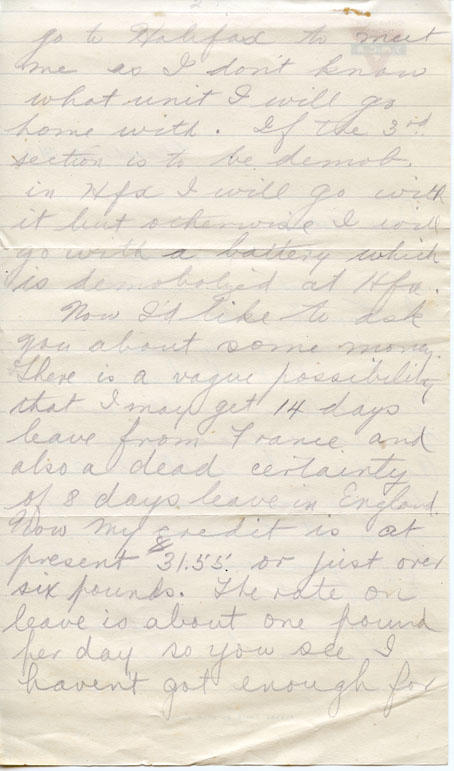 2
go to Halifax to meet
me as I don't know
what unit I will go
home with. If the 3rd
section is to be demob.
in Hfx I will go with
it but otherwise I will
go with a battery which
is demobolized at Hfx.
Now I'd like to ask
you about some money.
There is a vague possibility
that I may get 14 days
leave from France and
also a dead certainty
of 8 days leave in England.
Now my credit is at
present $31.55 or just over
six pounds. The rate on
leave is about one pound
per day so you see I
havent got enough for